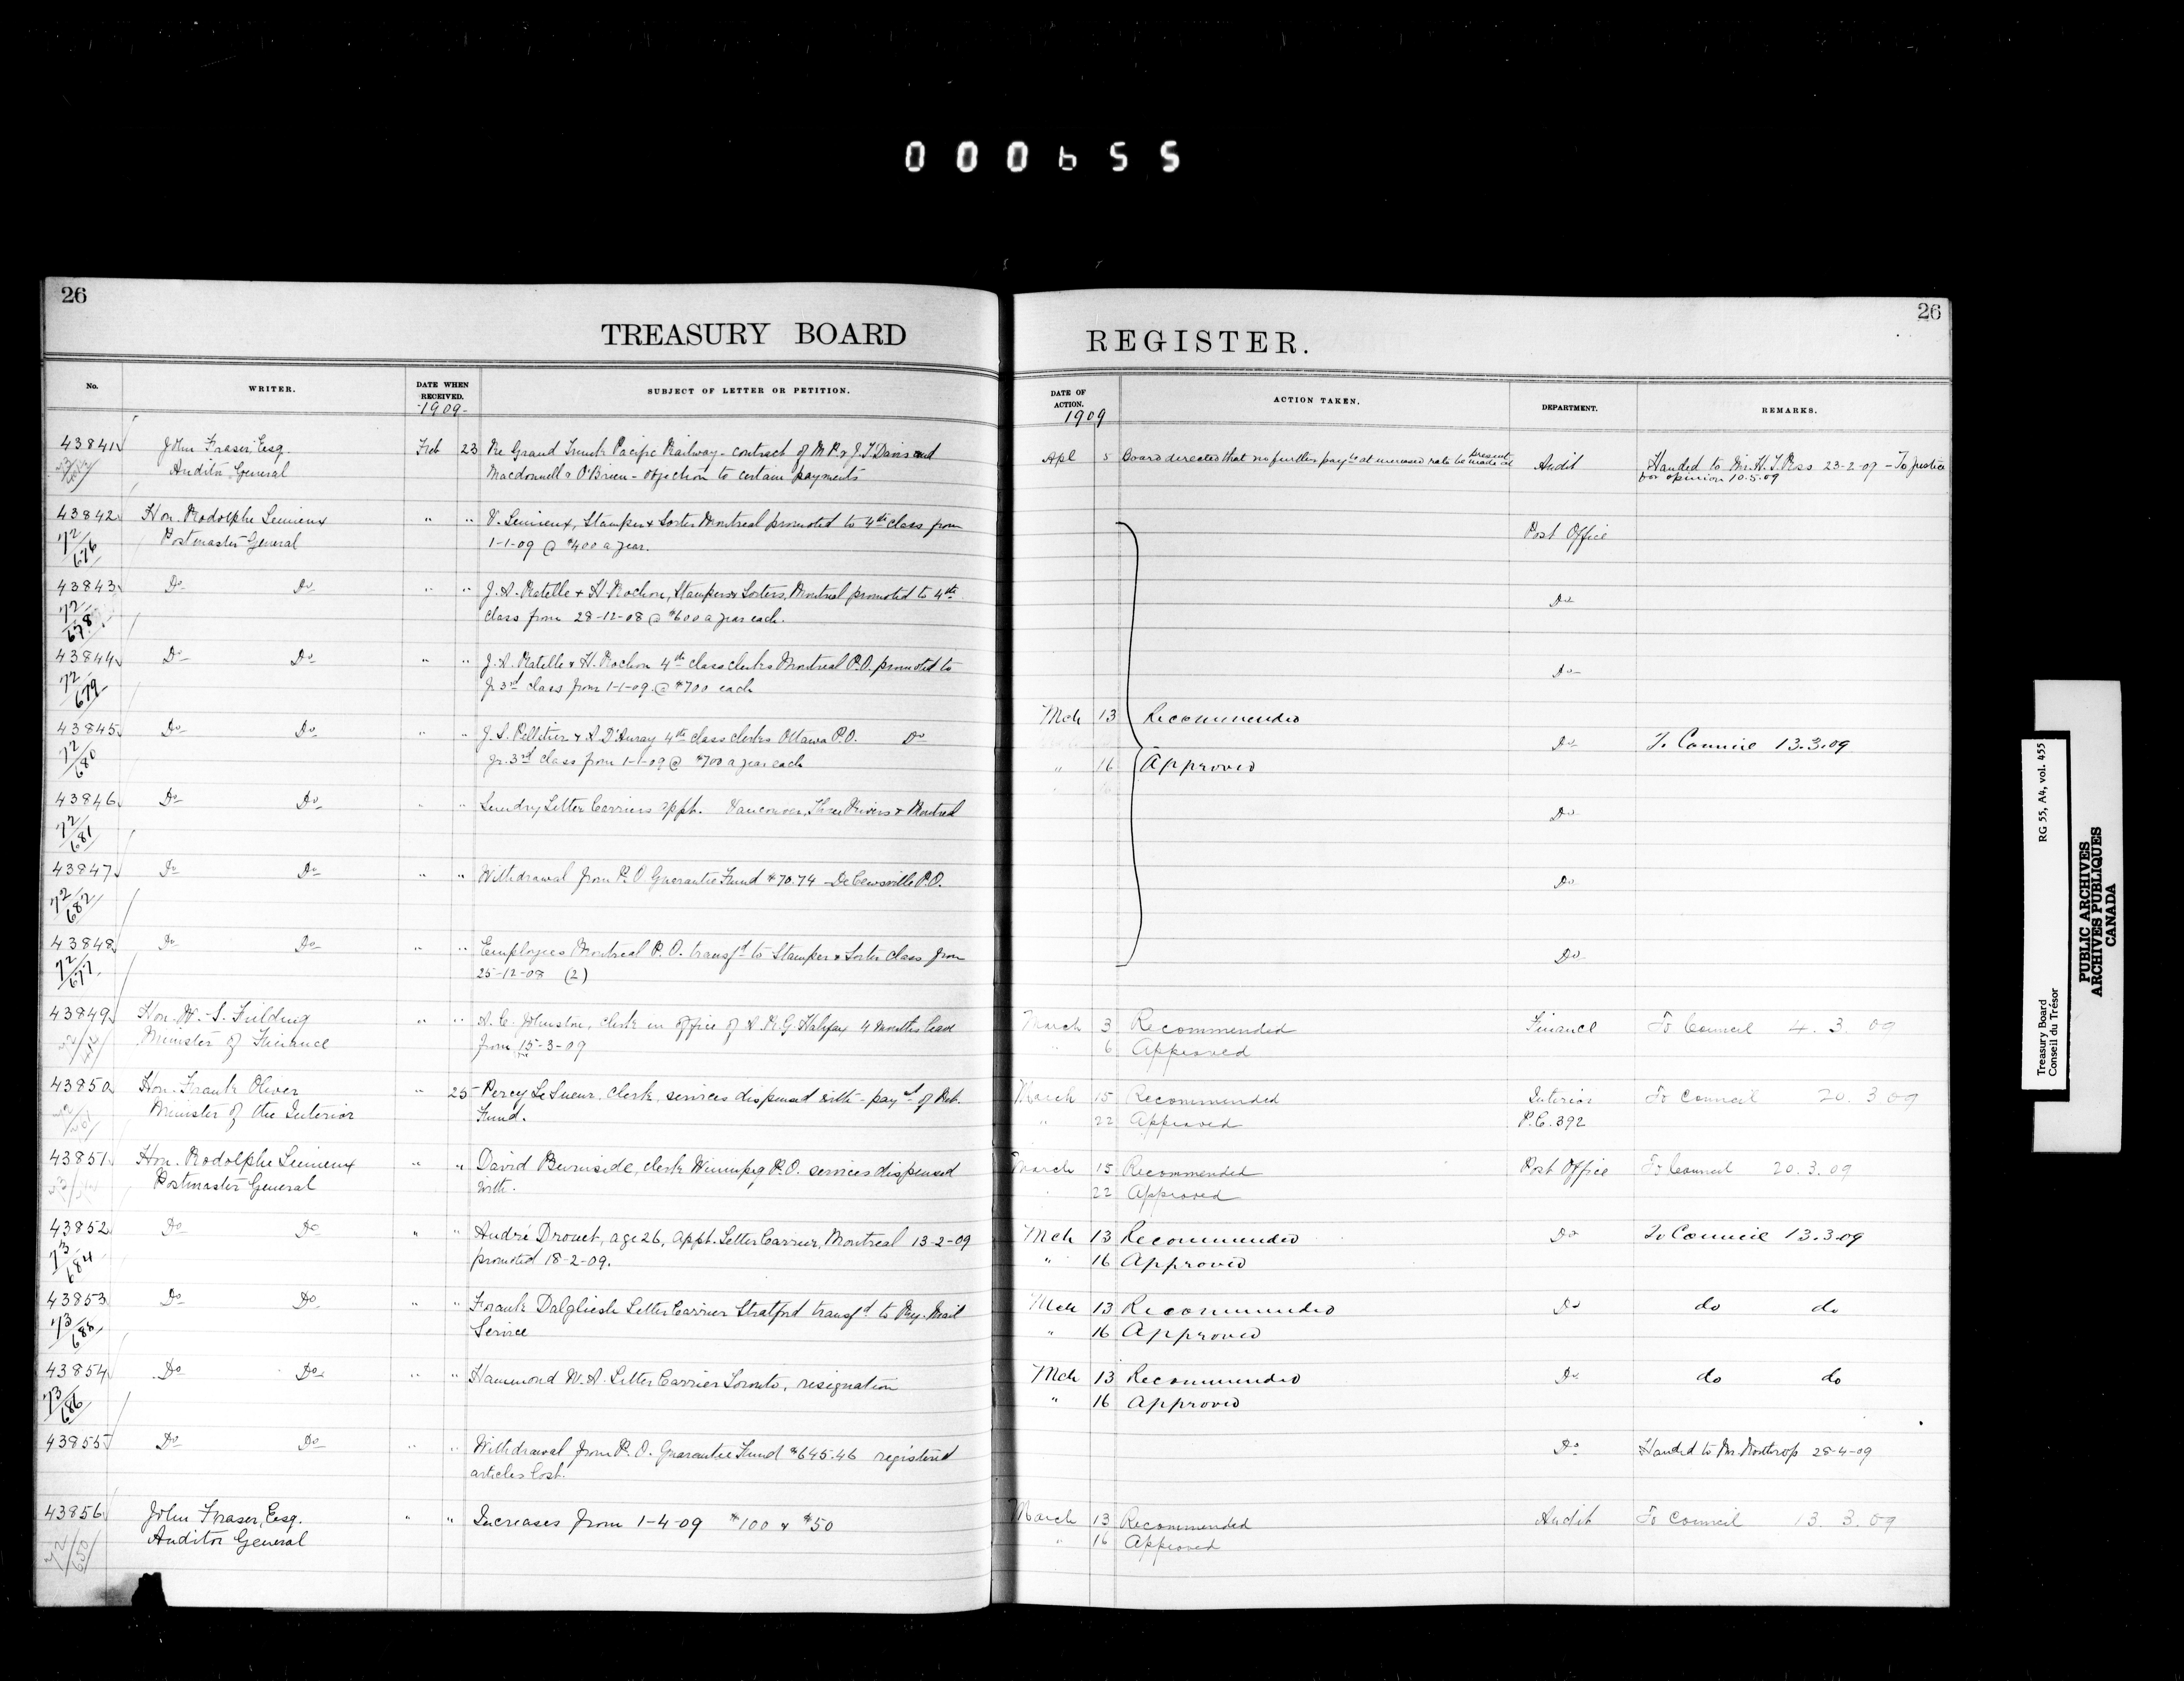 000655
26
TREASURY BOARD
26
REGISTER.
No.
WRITER.
DATE WHEN RECEIVED.
1909
SUBJECT OF LETTER OR PETITION.
DATE OF ACTION.
1909
ACTION TAKEN.
DEPARTMENT.
REMARKS.
43841 John Fraser, Esq. Feb 23 Re Grand Trunk Pacific Railway - contract of M.P. & J.T. Davis and Apl 5 Board directed that no further payts at increased rate be made at present Audit Handed to Mr. H.T. Ross 23-2-09 - To Justice
Auditor General Macdonnell & O'Brien - objection to certain payments for opinion 10.5.09
43842 Hon. Rodolphe Lemieux " " V. Lemieux, Stamper & Sorter Montreal promoted to 4th class from Post Office
72/676 Postmaster General 1-1-09 @ $400 a year.
43843 Do Do " " J.A. Ratelle & H. Rochon, Stampers & Sorters, Montreal promoted to 4th Do
72/678 class from 28-12-08 @ $600 a year each.
43844 Do Do " " J.A. Ratelle & H. Rochon 4th class clerks Montreal P.O. promoted to Do
72/679 Jr 3rd class from 1-1-09 @ $700 each
Mch 13 Recommended
43845 Do Do " " J.S. Pelletier & A D'Auray 4th class clerks Ottawa P.O. Do Do To Council 13.3.09
72/680 Jr. 3rd class from 1-1-09 @ $700 a year each " 16 Approved
43846 Do Do " " Sundry Letter Carriers appt. Vancouver, Three Rivers & Montreal Do
72/681
43847 Do Do " " Withdrawal from P.O Guarantee Fund $70.74 - DeCewsville P.O. Do
72/682
43848 Do Do " " Employees Montreal P.O. transfd to Stamper & Sorter class from Do
72/677 25-12-08 (2)
43849 Hon. W. S. Fielding " " A.C. Johnston, clerk in office of A.R.G. Halifax 4 months leave March 3 Recommended Finance To Council 4.3.09
Minister of Finance from 15-3-09 " 6 Approved
43850 Hon. Frank Oliver " 25 Percy LeSueur, clerk, services dispensed with - payt of Ret. March 15 Recommended Interior To Council 20.3.09
Minister of the Interior Fund. " 22 Approved P.C. 392
43851 Hon. Rodolphe Lemieux " " David Burnside, clerk Winnipeg P.O. services dispensed March 15 Recommended Post Office To Council 20.3.09
Postmaster General with. 22 Approved
43852 Do Do " " André Drouet, age 26, appt. Letter Carrier, Montreal 13-2-09 Mch 13 Recommended Do To Council 13.3.09
73/684 promoted 18-2-09. " 16 Approved
43853 Do Do " " Frank Dalgliesh Letter Carrier Stratford transfd to Ry. Mail Mch 13 Recommended Do do do
73/685 Service " 16 Approved
43854 Do Do " " Hammond W.A. Letter Carrier Toronto, resignation Mch 13 Recommended Do do do
73/686 " 16 Approved
43855 Do Do " " Withdrawal from P.O. Guarantee Fund $645.46 registered Do Handed to Mr. Northrop 28-4-09
articles lost.
43856 John Fraser, Esq. " " Increases from 1-4-09 $100 & $50 March 13 Recommended Audit To Council 13.3.09
Auditor General " 16 Approved
Treasury Board
Conseil du Trésor
RG 55, A4, vol. 455
PUBLIC ARCHIVES
ARCHIVES PUBLIQUES
CANADA